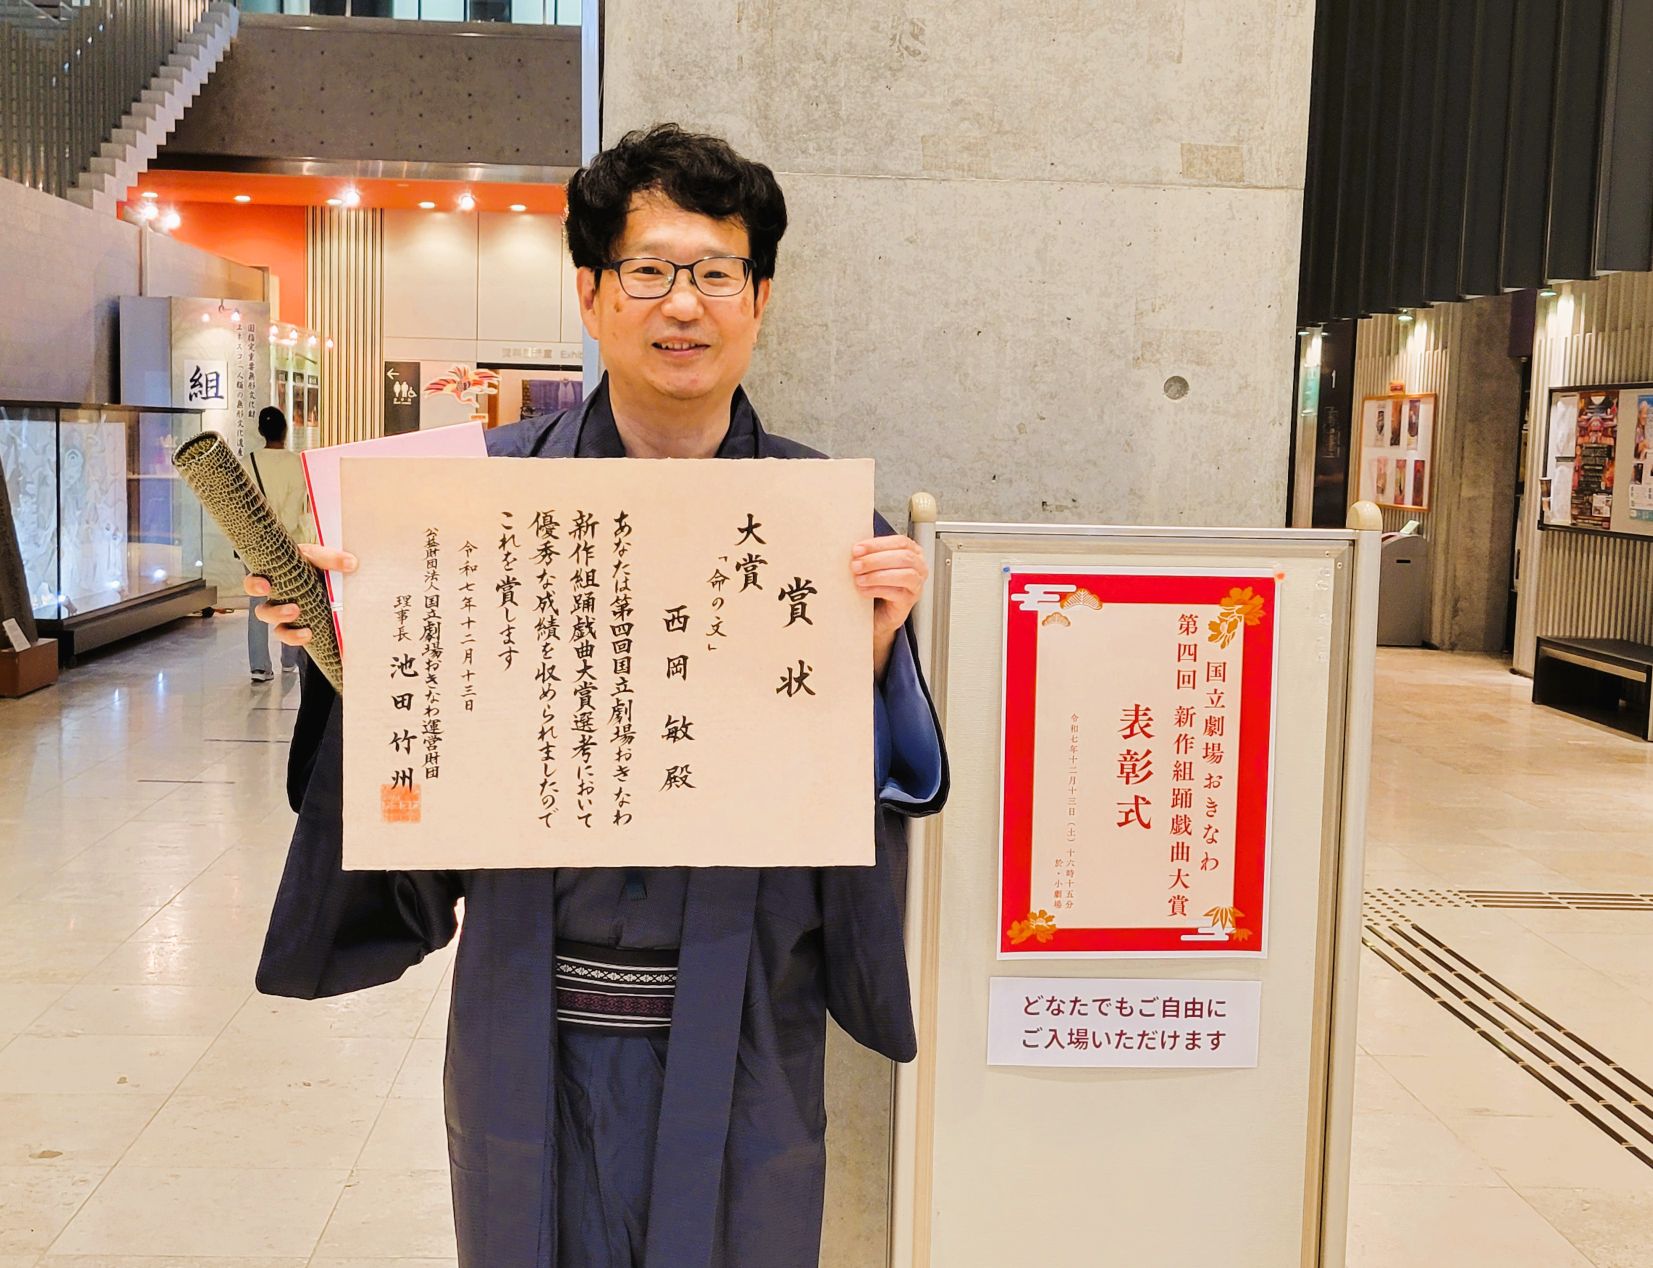 賞状
大賞
「命の文」
西岡敏殿
あなたは第四回国立劇場おきなわ
新作組踊戯曲大賞選考において
優秀な成績を収められましたので
これを賞します
令和七年十二月十三日
公益財団法人国立劇場おきなわ運営財団
理事長 池田竹州
国立劇場おきなわ
第四回 新作組踊戯曲大賞
表彰式
令和七年十二月十三日(土)十六時十五分
於・小劇場
どなたでもご自由に
ご入場いただけます
国指定重要無形文化財
ユネスコ「人類の無形文化遺産
組